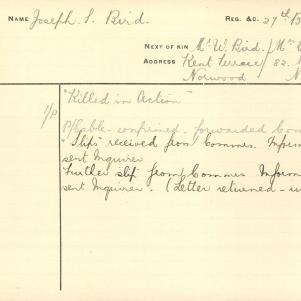 NAME Joseph. S. Bird. REG. &C. 27th B
NEXT OF KIN Mr W. Bird. / Mrs
ADDRESS Kent Terrace / 82.
Norwood N
"Killed in Action"
1/p
confirmed - forwarded Com
"Slip" received from Commrs. Inform
sent Inquirer
Further slip from Commrs Inform
sent Inquirer. (Letter returned - u